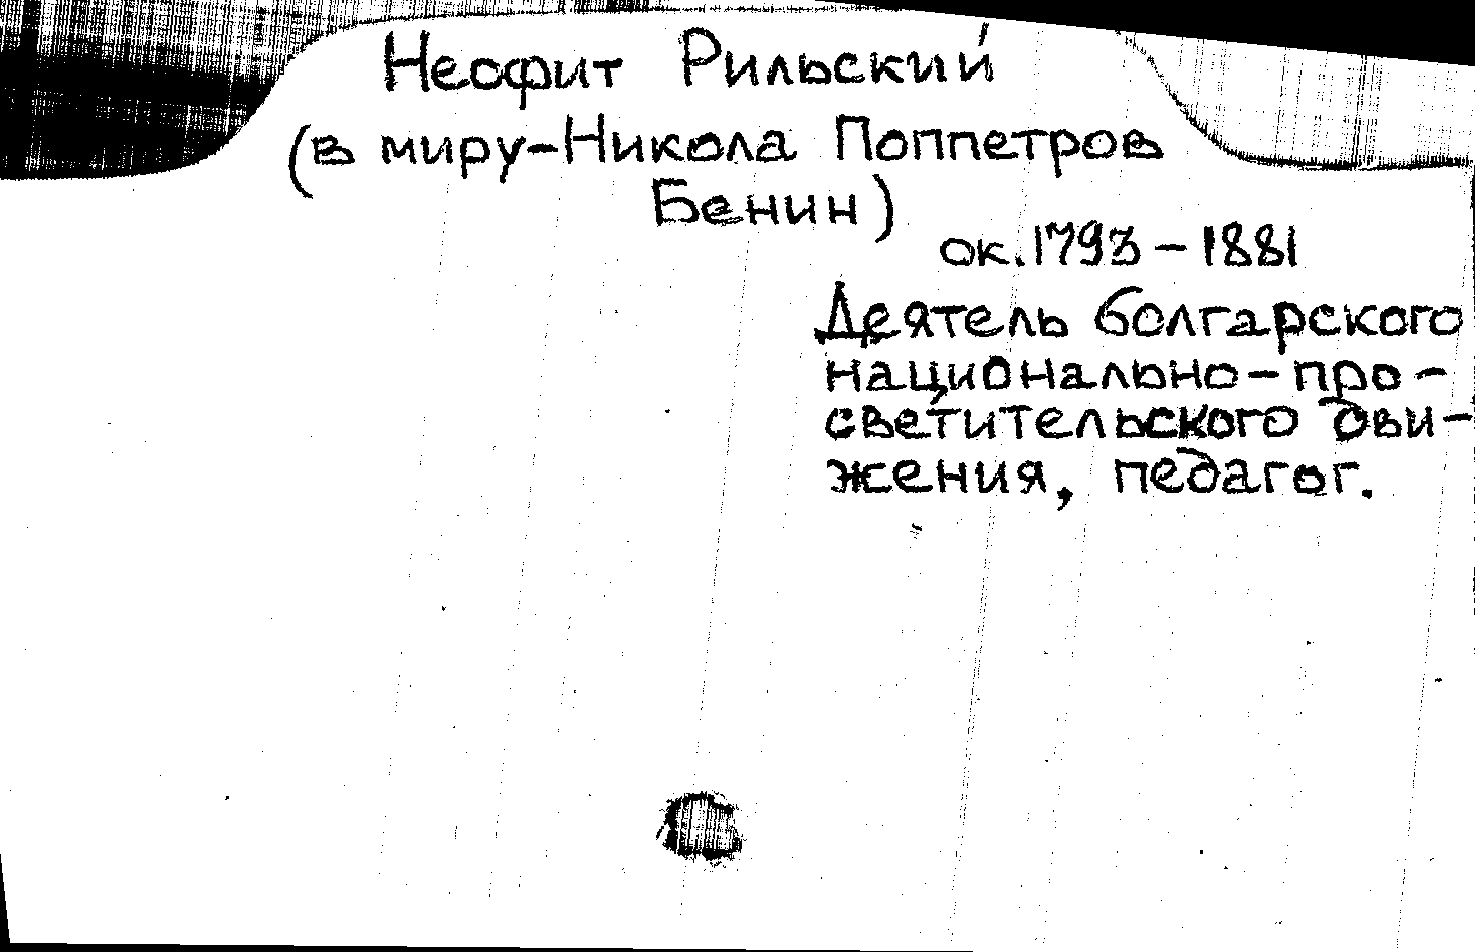 Неофит Рильский
(в миру-Никола Поппетров
Бенин)
ок. 1793 - 1881
Деятель болгарского
национально-про-
светительского дви-
жения, педагог.